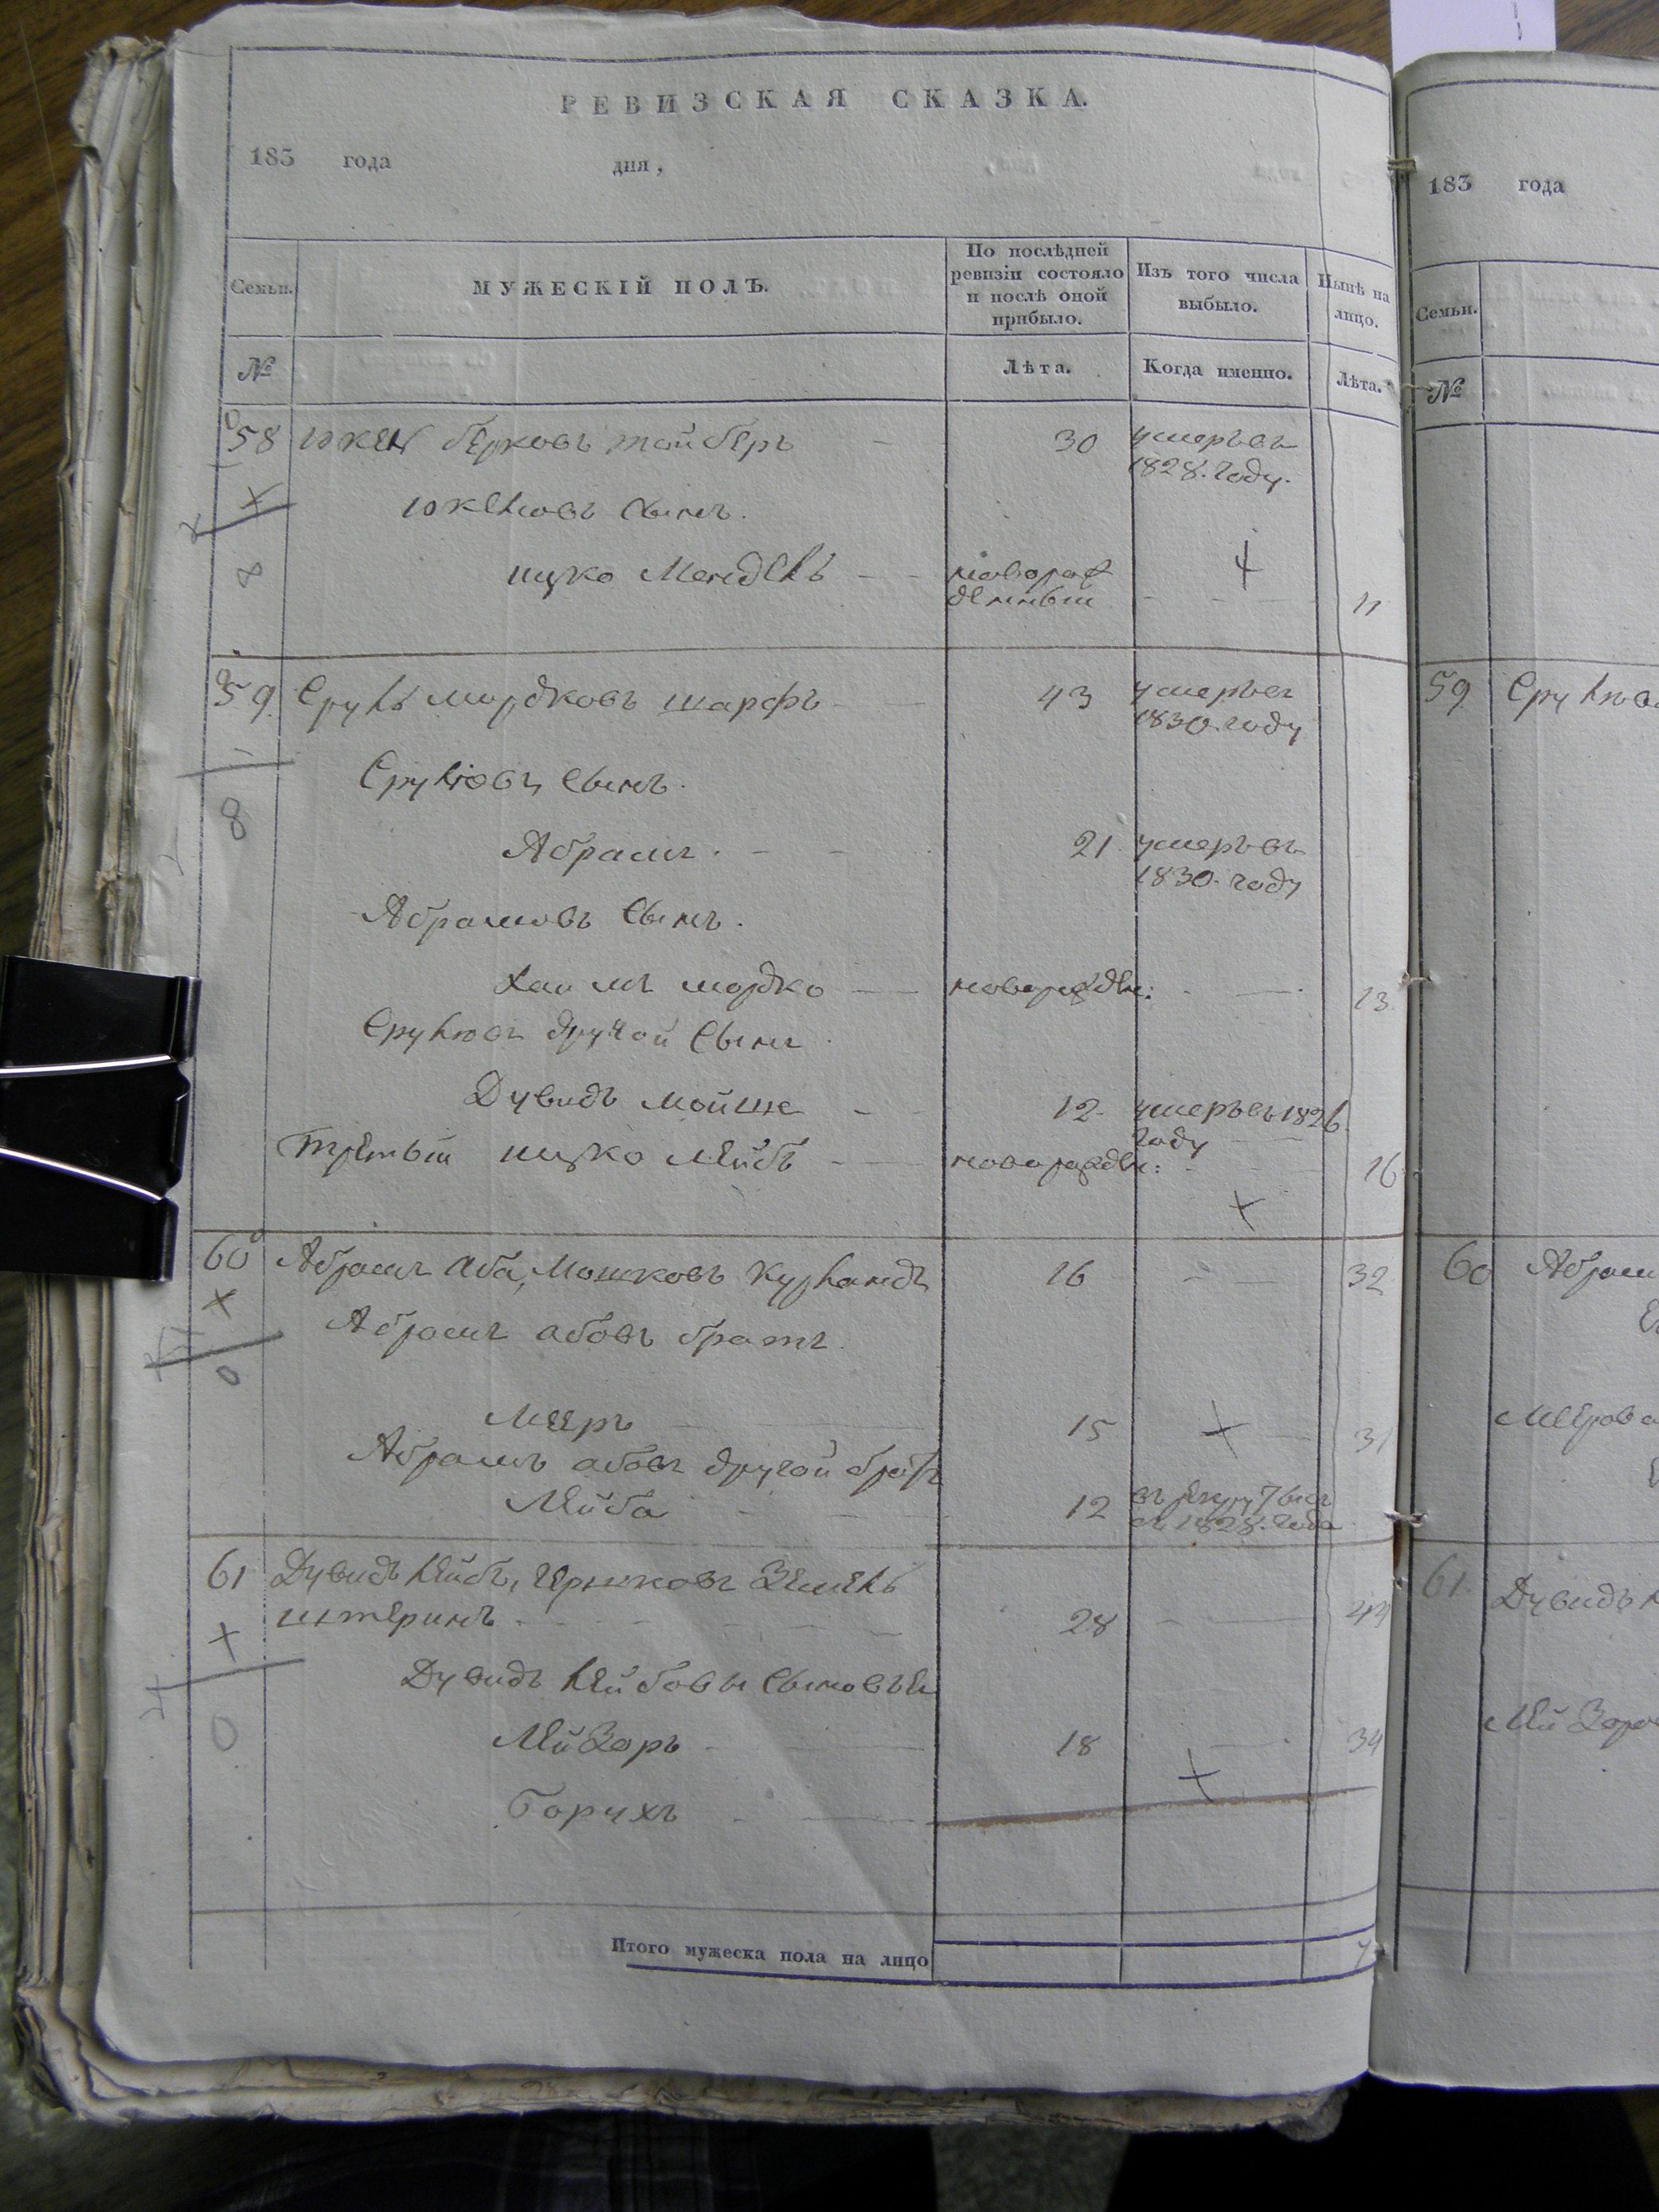 РЕВИЗСКАЯ СКАЗКА.
183 года дня,
Семьи. МУЖЕСКІЙ ПОЛЪ. По послѣдней ревизіи состояло и послѣ оной прибыло. Изъ того числа выбыло. Нынѣ на лицо.
№ Лѣта. Когда именно. Лѣта.
58 Юкель Берковъ Тойберъ 30 умеръ въ
1828. году.
Юкелювъ сынъ.
Ицко Мендель новорож
денный 11
59 Сруль Мордковъ Шарфъ 43 умеръ въ
1830. году
Срулювъ сынъ.
Абрамъ 21 умеръ въ
1830. году
Абрамовъ сынъ.
Хаимъ Мордко новорожден: 13
Срулювъ другой сынъ
Дувидъ Мойше 12 умеръ въ 1826.
году
Третьій Ицко Лейбъ новорожден: 16
60 Абрамъ Аба, Мошковъ Курландъ 16 32
Абрамъ Абовъ братъ
Мееръ 15 31
Абрамъ Абовъ другой братъ
Лейба 12 въ рекрутахъ
съ 1828. года
61 Дувидъ Лейбъ, Гершковъ Земель
штеринъ 28 44
Дувидъ Лейбовы сыновья
Лейзоръ 18 34
Борухъ
Итого мужеска пола на лицо 7
183 года
Семьи.
№
59
60 Абрам
61 Дувидъ